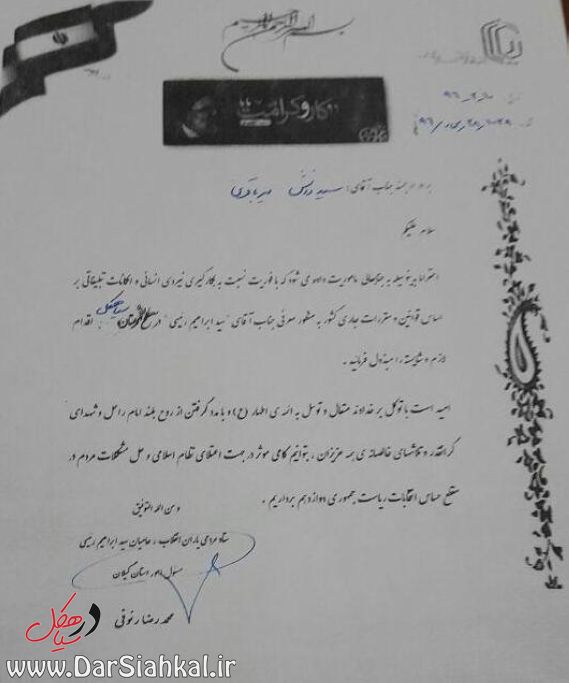 بسم الله الرحمن الرحیم
کار و کرامت
برادر ارجمند جناب آقای: سید
سلام علیکم
احتراما بدینوسیله به جنابعالی ماموریت داده می شود که با فوریت نسبت به بکارگیری نیروی انسانی و امکانات تبلیغاتی بر
اساس قوانین و مقررات جاری کشور به منظور معرفی جناب آقای "سید ابراهیم رئیسی" در سطح شهرستان سیاهکل اقدام
لازم و شایسته را مبذول فرمائید.
امید است با توکل بر خداوند متعال و توسل به ائمه ی اطهار (ع) و با مدد گرفتن از روح بلند امام راحل و شهدای
گرانقدر و تلاشهای خالصانه ی همه عزیزان، بتوانیم گامی موثر در جهت اعتلای نظام اسلامی و حل مشکلات مردم در
مقطع حساس انتخابات ریاست جمهوری دوازدهم برداریم.
و من الله التوفیق
ستاد مردمی یاران انقلاب، حامیان سید ابراهیم رئیسی
مسئول امور استان گیلان
محمدرضا رنوفی
در سیاهکل
www.DarSiahkal.ir